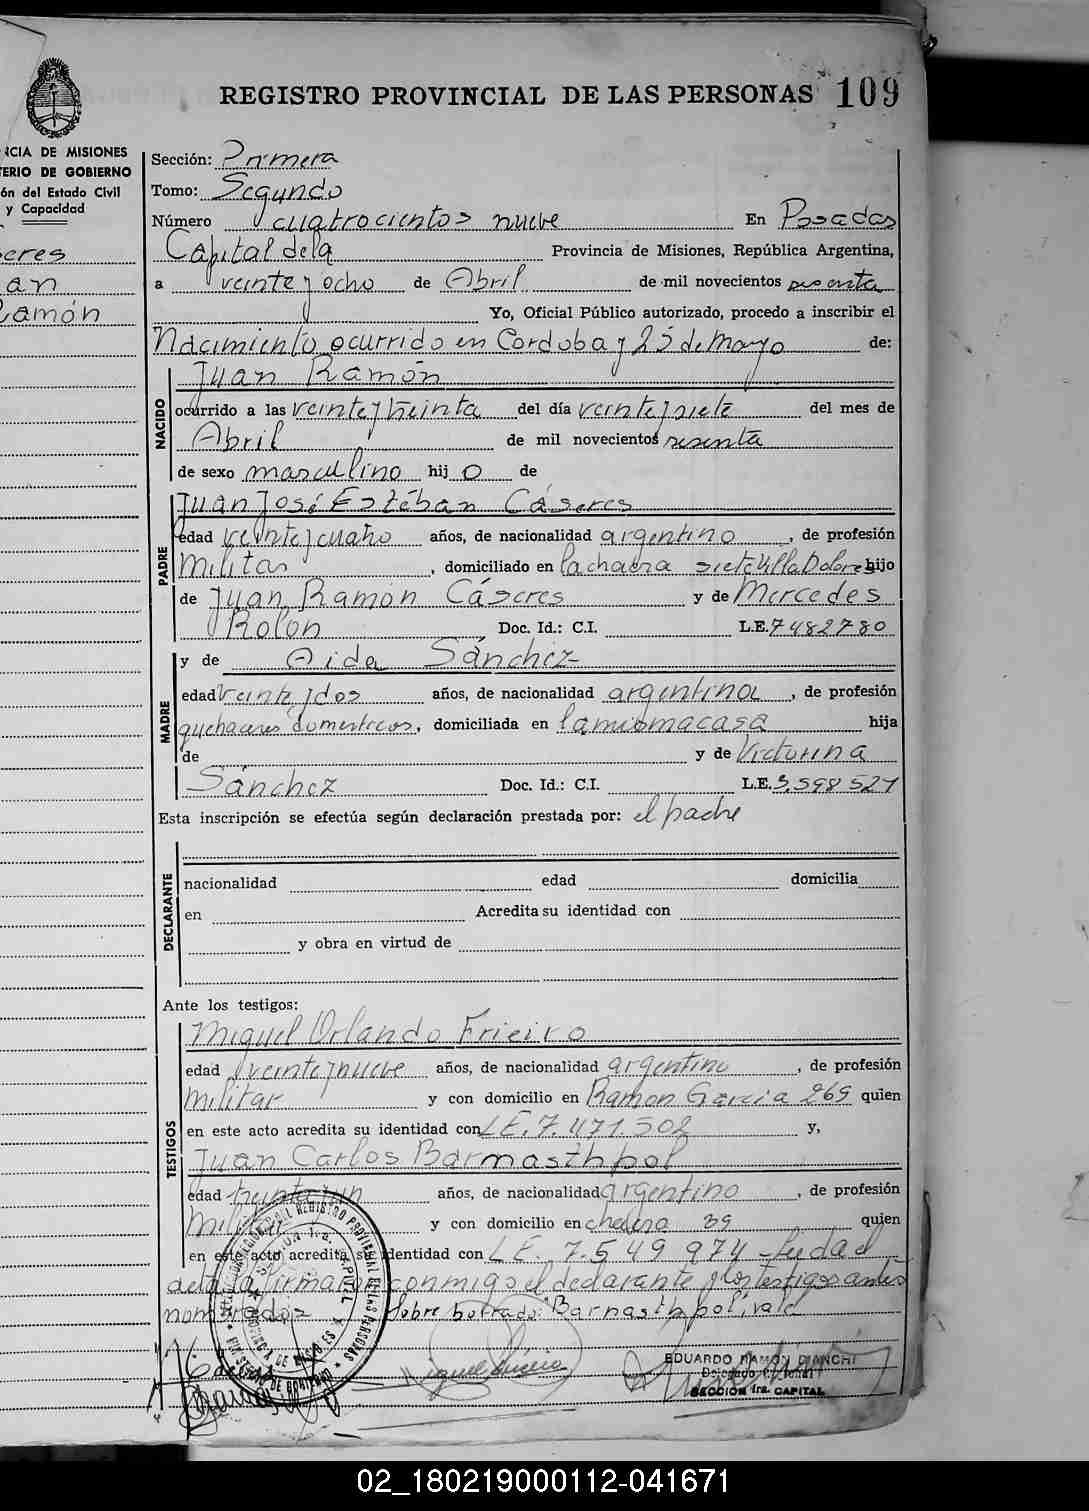 REGISTRO PROVINCIAL DE LAS PERSONAS 109
NCIA DE MISIONES
TERIO DE GOBIERNO
ón del Estado Civil
y Capacidad
ceres
an
Ramón
Sección: Primera
Tomo: Segundo
Número cuatrocientos nueve En Posadas
Capital de la Provincia de Misiones, República Argentina,
a veinte y ocho de Abril de mil novecientos sesenta
Yo, Oficial Público autorizado, procedo a inscribir el
Nacimiento ocurrido en Cordoba y 25 de Mayo de:
NACIDO
Juan Ramón
ocurrido a las veinte y treinta del día veinte y siete del mes de
Abril de mil novecientos sesenta
de sexo masculino hij o de
PADRE
Juan José Estéban Cáseres
edad veinte y cuatro años, de nacionalidad argentino, de profesión
Militar, domiciliado en la chacra siete Villa Dolores hijo
de Juan Ramón Cáseres y de Mercedes
Rolón Doc. Id.: C.I. L.E. 7482780
MADRE
y de Aida Sánchez
edad veinte y dos años, de nacionalidad argentina, de profesión
quehaceres domesticos, domiciliada en la misma casa hija
de y de Victorina
Sánchez Doc. Id.: C.I. L.E. 3.598.527
Esta inscripción se efectúa según declaración prestada por: el padre
DECLARANTE
nacionalidad edad domicilia
en Acredita su identidad con
y obra en virtud de
Ante los testigos:
TESTIGOS
Miguel Orlando Frieiro
edad veinte y nueve años, de nacionalidad argentino, de profesión
militar y con domicilio en Ramon Garcia 269 quien
en este acto acredita su identidad con L.E. 7.471.502 y,
Juan Carlos Barmasthpol
edad treinta y un años, de nacionalidad argentino, de profesión
Militar y con domicilio en chacra 39 quien
en este acto acredita su identidad con L.E. 7.549.974 - Leida el
acta la firman conmigo el declarante y los testigos antes
nombrados Sobre borrado: Barnasthpol, vale
EDUARDO RAMON BIANCHI
Delegado Seccional
SECCION 1ra. CAPITAL
02_180219000112-041671